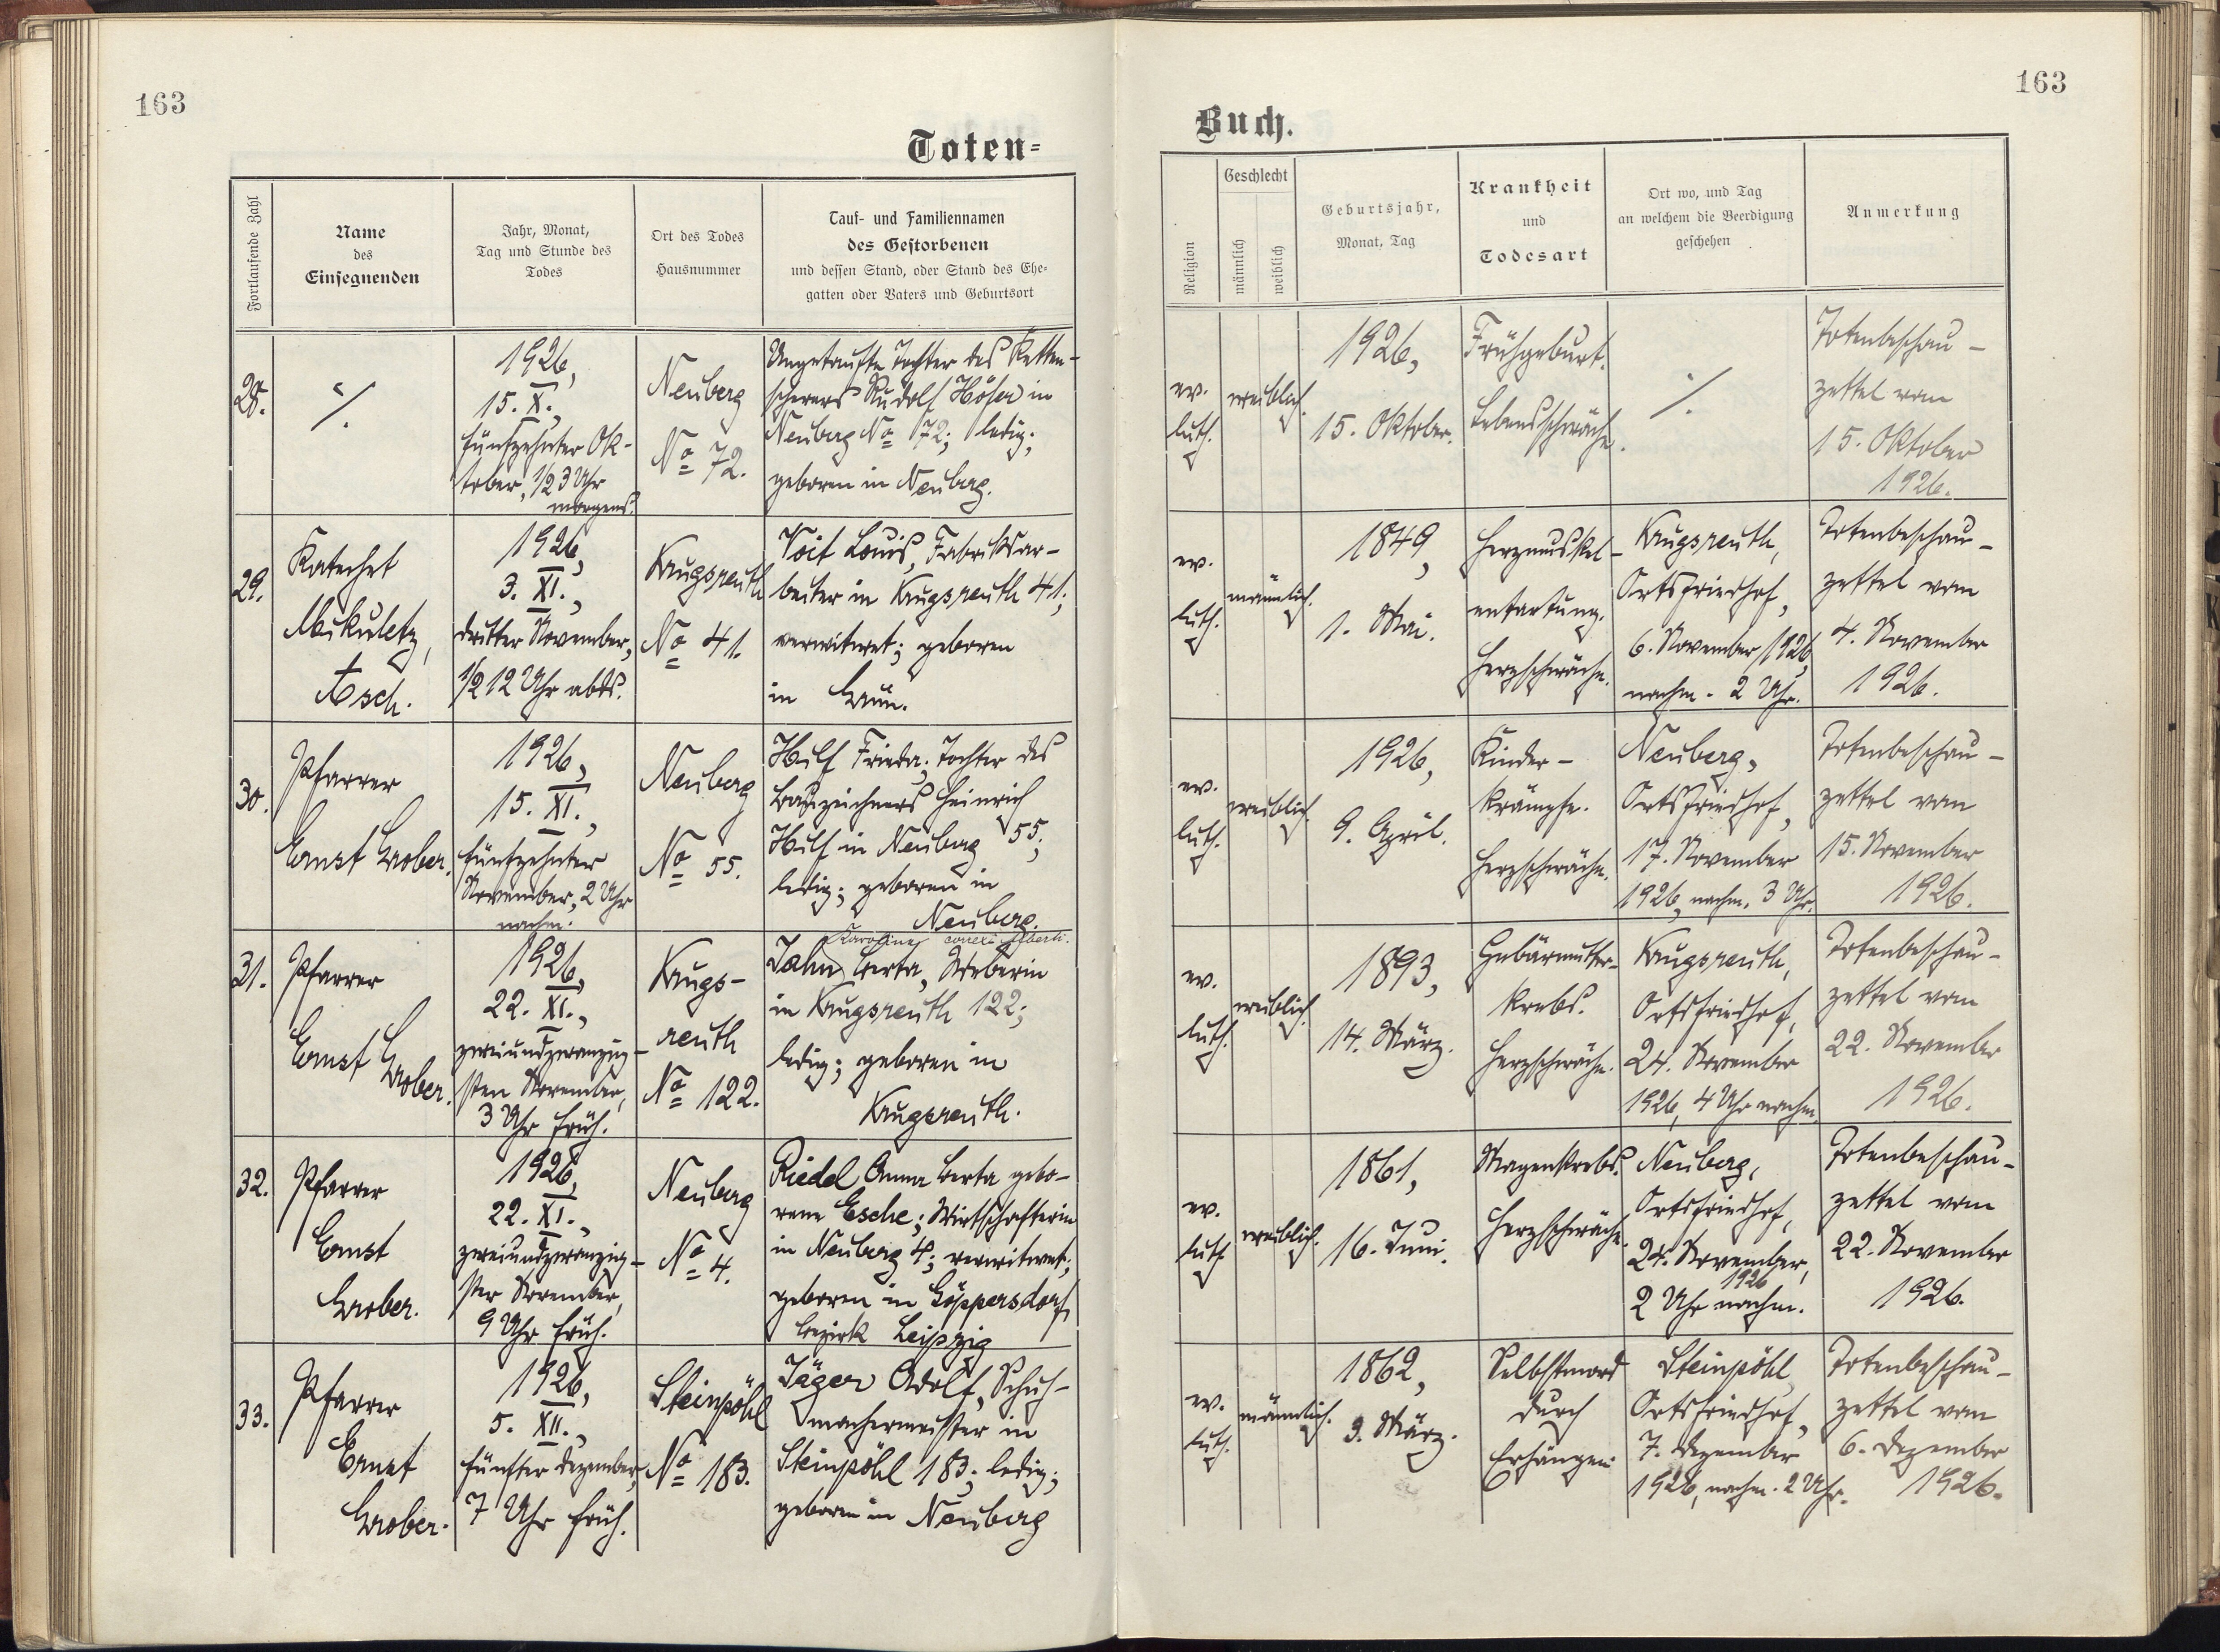 163
163
Toten-
Buch.
Fortlaufende Zahl
Name
des
Einsegnenden
Jahr, Monat,
Tag und Stunde des
Todes
Ort des Todes
Hausnummer
Tauf- und Familiennamen
des Gestorbenen
und dessen Stand, oder Stand des Ehe-
gatten oder Vaters und Geburtsort
Religion
Geschlecht
männlich
weiblich
Geburtsjahr,
Monat, Tag
Krankheit
und
Todesart
Ort wo, und Tag
an welchem die Beerdigung
geschehen
Anmerkung
28.
·/.
1926,
15. X.,
fünfzehnter Ok-
tober, 1/2 3 Uhr
morgens.
Neuberg
No 72.
Ungetaufte Tochter des Ketten-
scherers Rudolf Höfer in
Neuberg No 72; ledig;
geboren in Neuberg.
ev.
luth.
weiblich.
1926,
15. Oktober.
Frühgeburt.
Lebensschwäche.
·/.
Totenbeschau-
zettel vom
15. Oktober
1926.
29.
Katechet
Mikuletz,
Asch.
1926,
3. XI.,
dritter November,
1/2 12 Uhr abds.
Krugsreuth
No 41.
Voit Louis, Fabriksar-
beiter in Krugsreuth 41;
verwitwet; geboren
in Grün.
ev.
luth.
männlich.
1849,
1. Mai.
Herzmuskel-
entartung.
Herzschwäche.
Krugsreuth,
Ortsfriedhof,
6. November 1926,
nachm. 2 Uhr.
Totenbeschau-
zettel vom
4. November
1926.
30.
Pfarrer
Ernst Grober.
1926,
15. XI.,
fünfzehnter
November, 2 Uhr
nachm.
Neuberg
No 55.
Hulf Frieda; Tochter des
Bauzeichners Heinrich
Hulf in Neuberg 55;
ledig; geboren in
Neuberg.
ev.
luth.
weiblich.
1926,
9. April.
Kinder-
krämpfe.
Herzschwäche.
Neuberg,
Ortsfriedhof,
17. November
1926, nachm. 3 Uhr.
Totenbeschau-
zettel vom
15. November
1926.
31.
Pfarrer
Ernst Grober.
1926,
22. XI.,
zweiundzwanzig-
sten November,
3 Uhr früh.
Krugs-
reuth
No 122.
Karoline correxi Alberti.
Jahn Berta, Weberin
in Krugsreuth 122;
ledig; geboren in
Krugsreuth.
ev.
luth.
weiblich.
1893,
14. März.
Gebärmutter-
krebs.
Herzschwäche.
Krugsreuth,
Ortsfriedhof,
24. November
1926, 4 Uhr nachm.
Totenbeschau-
zettel vom
22. November
1926.
32.
Pfarrer
Ernst
Grober.
1926,
22. XI.,
zweiundzwanzig-
ster November,
9 Uhr früh.
Neuberg
No 4.
Riedel Anna Berta gebo-
rene Esche; Wirtschafterin
in Neuberg 4; verwitwet;
geboren in Göppersdorf,
Bezirk Leipzig
ev.
luth
weiblich.
1861,
16. Juni.
Magenkrebs.
Herzschwäche.
Neuberg,
Ortsfriedhof,
24. November,
1926
2 Uhr nachm.
Totenbeschau-
zettel vom
22. November
1926.
33.
Pfarrer
Ernst
Grober.
1926,
5. XII.,
fünfter Dezember,
7 Uhr früh.
Steinpöhl
No 183.
Jäger Adolf, Schuh-
machermeister in
Steinpöhl 183; ledig;
geboren in Neuberg
ev.
luth.
männlich.
1862,
3. März.
Selbstmord
durch
Erhängen
Steinpöhl
Ortsfriedhof,
7. Dezember
1926, nachm. 2 Uhr.
Totenbeschau-
zettel vom
6. Dezember
1926.